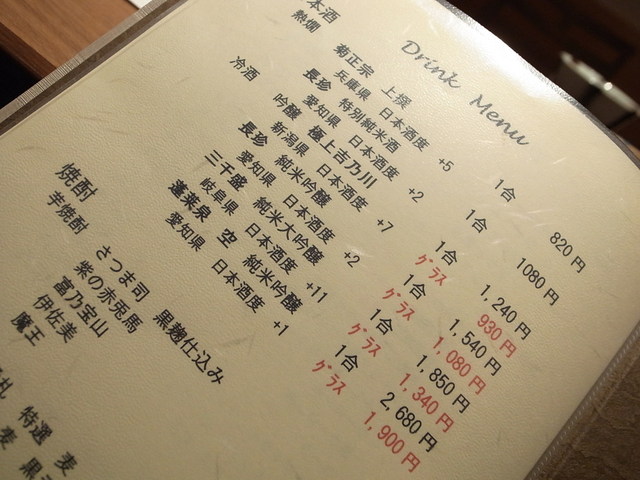 Drink Menu
本酒
熱燗 菊正宗 上撰 1合 820円
兵庫県 日本酒度 +5
長珍 特別純米酒 1合 1080円
愛知県 日本酒度 +2
冷酒 吟醸 極上吉乃川 1合 1,240円
新潟県 日本酒度 +7 グラス 930円
長珍 純米吟醸 1合 1,540円
愛知県 日本酒度 +2 グラス 1,080円
三千盛 純米大吟醸 1合 1,850円
岐阜県 日本酒度 +11 グラス 1,340円
蓬莱泉 空 純米吟醸 1合 2,680円
愛知県 日本酒度 +1 グラス 1,900円
焼酎
芋焼酎 さつま司 黒麹仕込み
紫の赤兎馬
富乃宝山
伊佐美
魔王
札 特選 麦
麦 黒